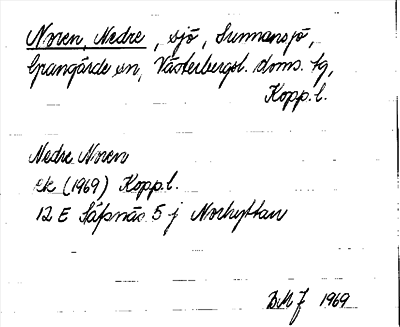 Noren, Nedre, sjö, Sunnansjö,
Grangärde sn, Västerbergsl. doms. tg,
Kopp. l.
Nedre Noren
ek (1969) Kopp. l.
12 E Säfsnäs 5 j Norhyttan
BMJ 1969